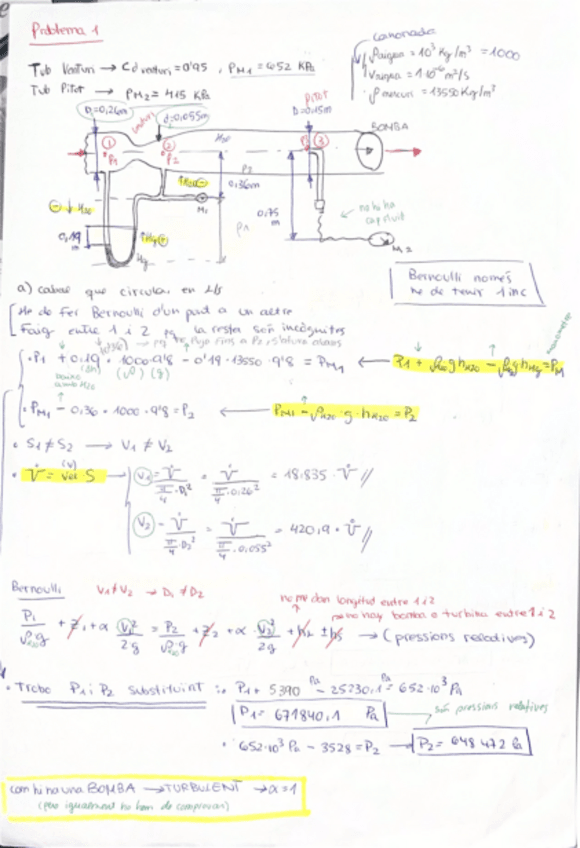 Problema 1
canonada
Tub Venturi → Cd venturi = 0'95 , PM1 = 652 KPa
ρaigua = 10³ Kg/m³ = 1000
Tub Pitot → PM2 = 415 KPa
νaigua = 1·10⁻⁶ m²/s
ρmercuri = 13550 Kg/m³
D=0,26m
venturi
d=0,055m
pitot
D=0.15m
BOMBA
① P1
② P2
③
H2O
0,36m
M1
0,19 m
Hg
0,75 m
no hi ha
M2
a) cabal que circula en L/s
Bernoulli només
he de tenir 1 inc
He de fer Bernoulli d'un punt a un altre
Faig entre 1 i 2 pq la resta són incògnites
• P1 + 0,19 · 1000 · 9'8 − 0'19 · 13550 · 9'8 = PM1 ← P1 + ρH2O g hH2O − ρHg g hHg = PM
(ρ) (g)
• PM1 − 0,36 · 1000 · 9'8 = P2 ← PM1 − ρH2O · g · hH2O = P2
• S1 ≠ S2 → V1 ≠ V2
• V̇ = vel S → V1 = V̇ / (π/4 · D1²) = V̇ / (π/4 · 0,26²) = 18.835 · V̇ //
V2 = V̇ / (π/4 · D2²) = V̇ / (π/4 · 0,055²) = 420,9 · V̇ //
Bernoulli
V1 ≠ V2 → D1 ≠ D2
no me dan longitud entre 1 i 2
no hay bomba o turbina entre 1 i 2
P1/ρH2O·g + z1 + α V1²/2g = P2/ρH2O·g + z2 + α · V2²/2g + → (pressions relatives)
• Trobo P1 i P2 substituint : • P1 + 5390 Pa − 25230,1 Pa = 652·10³ Pa
P1 = 671840,1 Pa
són pressions relatives
• 652·10³ Pa − 3528 = P2 → P2 = 648 472 Pa
com hi ha una BOMBA → TURBULENT → α = 1
(però igualment ho hem de comprovar)